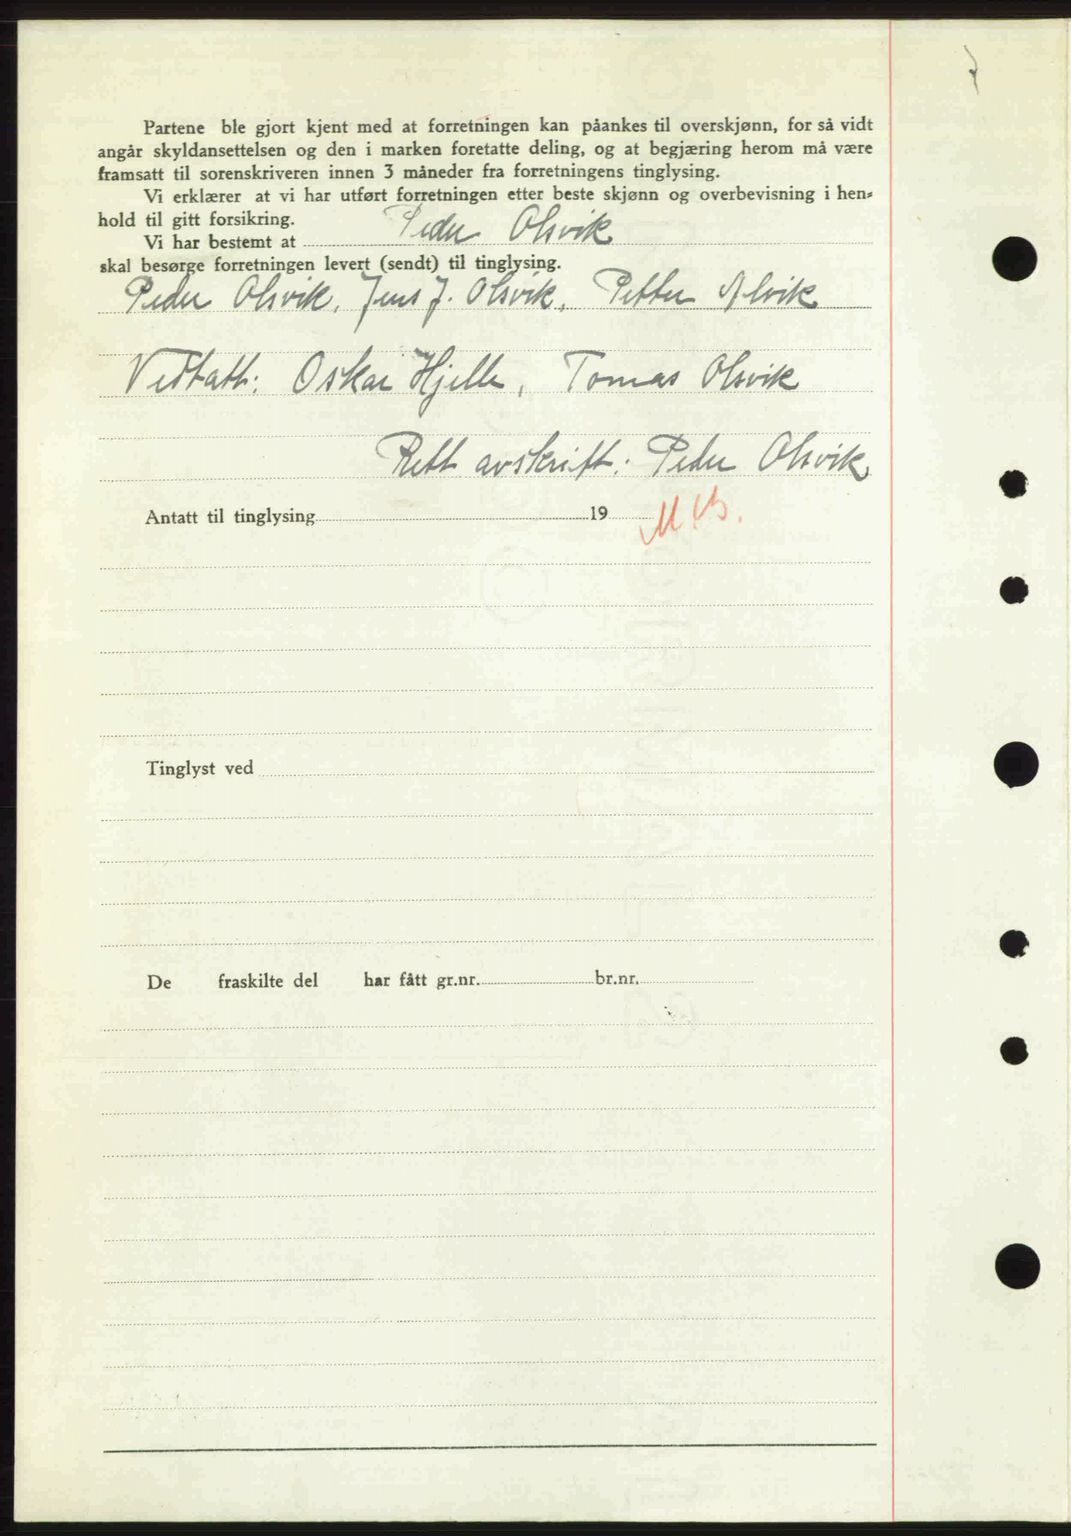 Partene ble gjort kjent med at forretningen kan påankes til overskjønn, for så vidt
angår skyldansettelsen og den i marken foretatte deling, og at begjæring herom må være
framsatt til sorenskriveren innen 3 måneder fra forretningens tinglysing.
Vi erklærer at vi har utført forretningen etter beste skjønn og overbevisning i hen-
hold til gitt forsikring.
Vi har bestemt at Peder Olsvik
skal besørge forretningen levert (sendt) til tinglysing.
Peder Olsvik, Jens J. Olsvik, Petter Alvik
Vedtatt: Oskar Hjelle, Tomas Olsvik
Rett avskrift: Peder Olsvik
Antatt til tinglysing 19
Tinglyst ved
De fraskilte del har fått gr.nr. br.nr.